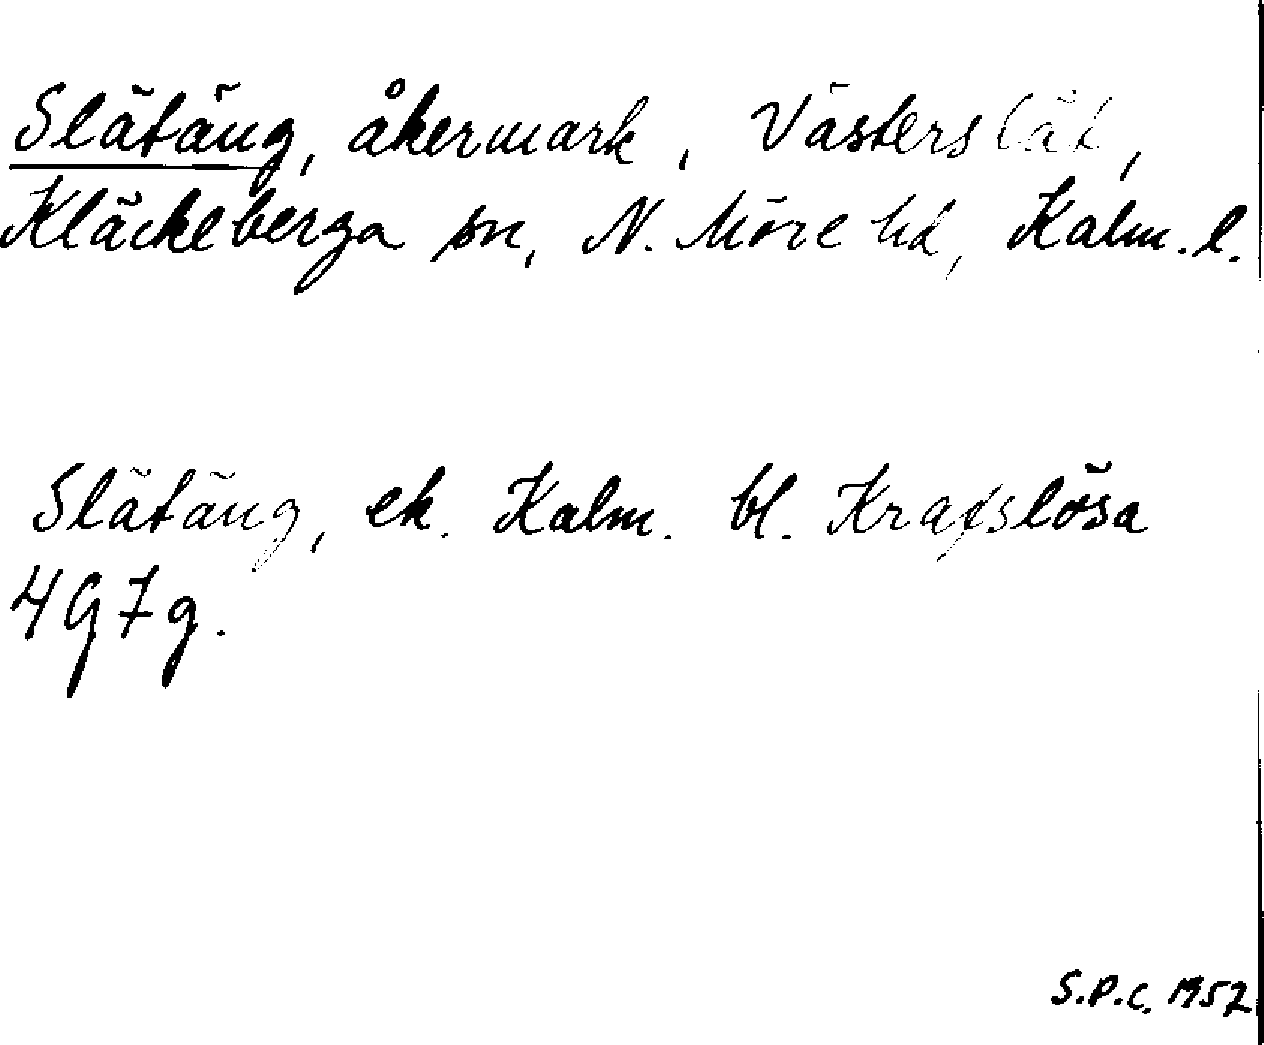 Slätäng, åkermark, Västerslät,
Kläckeberga sn, N. Möre hd, Kalm. l.
Slätäng, ek. Kalm. bl. Krafslösa
4G7g.
S.P.C. 1952